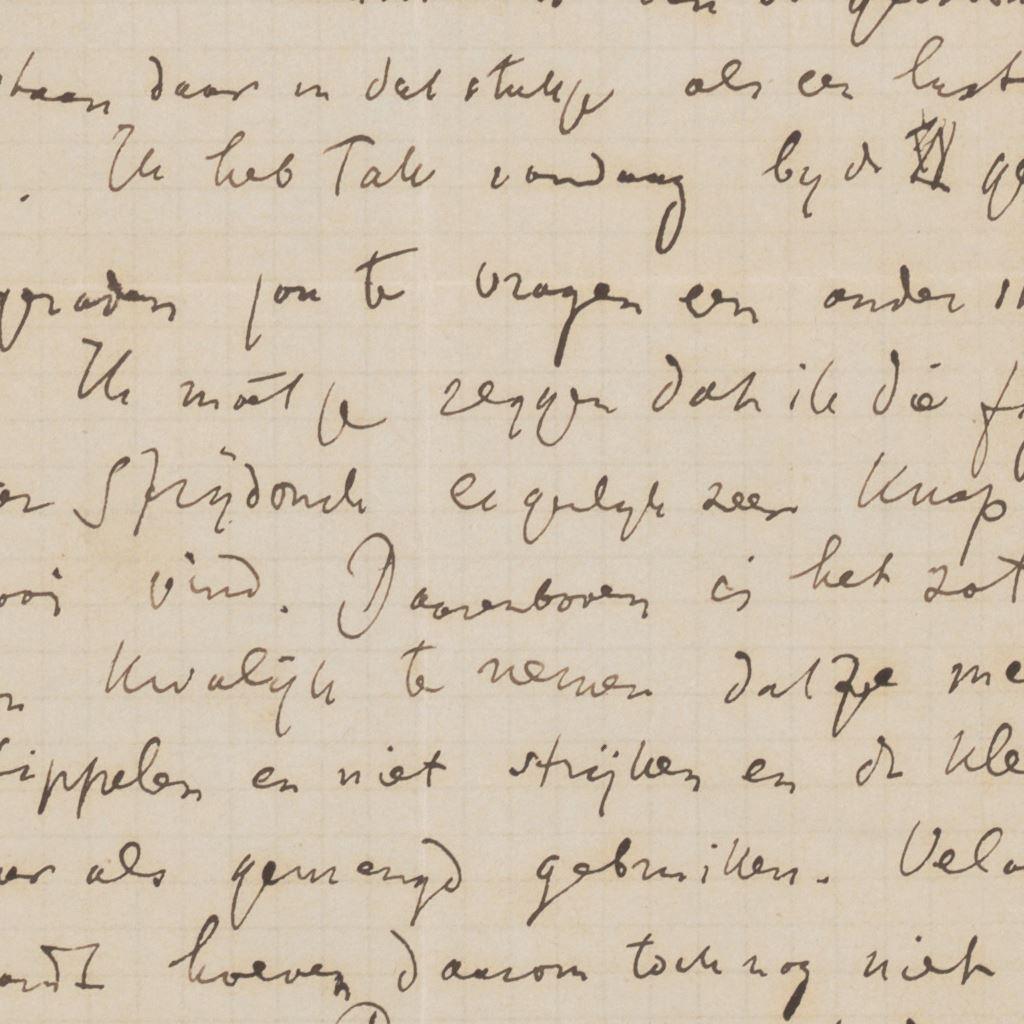 staan daar in dat stukje als een last
. Ik heb Tak vandaag by de ge
geraden jou te vragen een ander in
Ik moet je zeggen dat ik die
Sprijdonck eigenlyk zeer knap
ooi vind. Daarenboven is het zot
kwalijk te nemen dat ze me
tippelen en niet strijken en de kle
als gemengd gebruiken. Vela
hoeven daarom toch nog niet